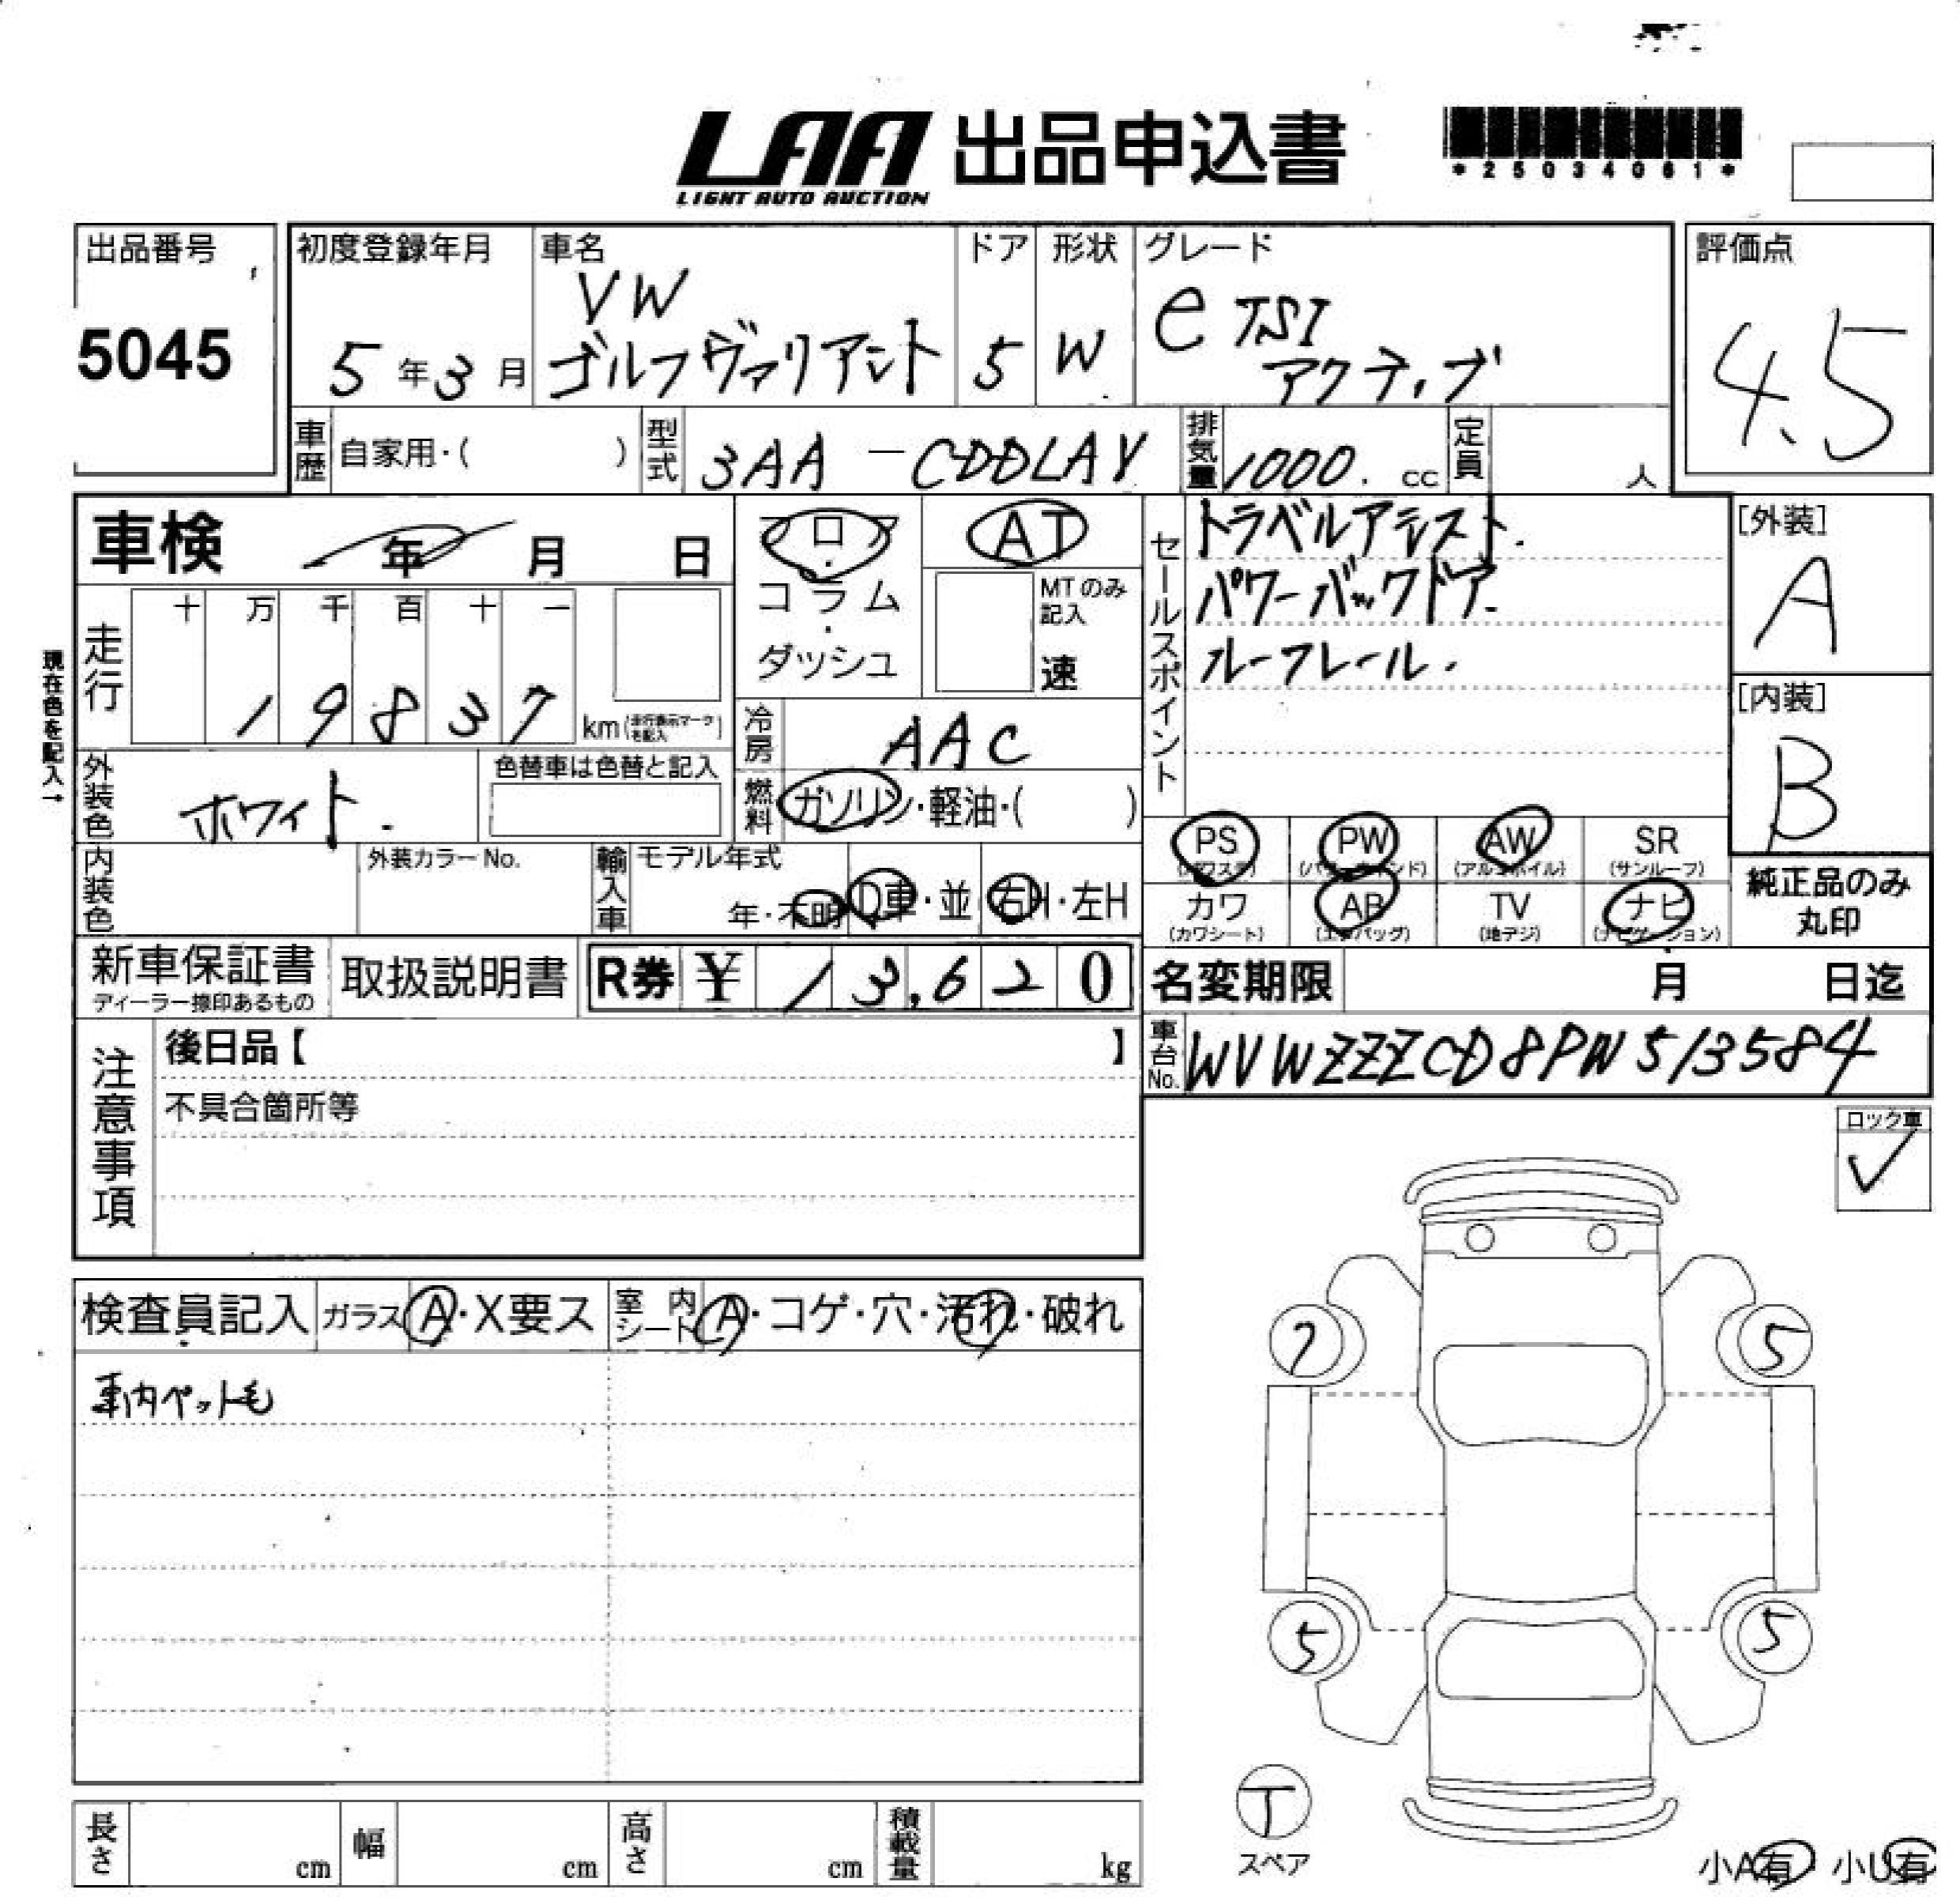 LAA 出品申込書
LIGHT AUTO AUCTION
*25034061*
出品番号
5045
初度登録年月
5年3月
車名
VW
ゴルフヴァリアント
ドア
5
形状
W
グレード
e TSI
アクティブ
評価点
4.5
車歴 自家用・( )
型式 3AA-CDDLAY
排気量 1000. cc
定員 人
車検 年 月 日
フロア・コラム・ダッシュ
AT
MTのみ記入
速
走行
十 万 千 百 十 一
1 9 8 3 7 km(走行表示マークを記入)
現在色を記入→
冷房 AAC
燃料 ガソリン・軽油・( )
外装色 ホワイト.
色替車は色替と記入
内装色
外装カラーNo.
輸入車
モデル年式
年・不明
D車・並
右H・左H
セールスポイント
トラベルアシスト.
パワーバックドア.
ルーフレール.
[外装]
A
[内装]
B
PS (パワステ)
PW (パワーウィンド)
AW (アルミホイル)
SR (サンルーフ)
カワ (カワシート)
AB (エアバッグ)
TV (地デジ)
ナビ (ナビゲーション)
純正品のみ
丸印
新車保証書
ディーラー捺印あるもの
取扱説明書
R券 ¥ 13,620
名変期限 月 日迄
車台No. WVWZZZCD8PW513584
注意事項
後日品【 】
不具合箇所等
ロック車
✓
検査員記入
ガラス A・X要ス
室内シート A・コゲ・穴・汚れ・破れ
車内ペット毛
7
5
5
5
T
スペア
長さ cm
幅 cm
高さ cm
積載量 kg
小A有・小U有